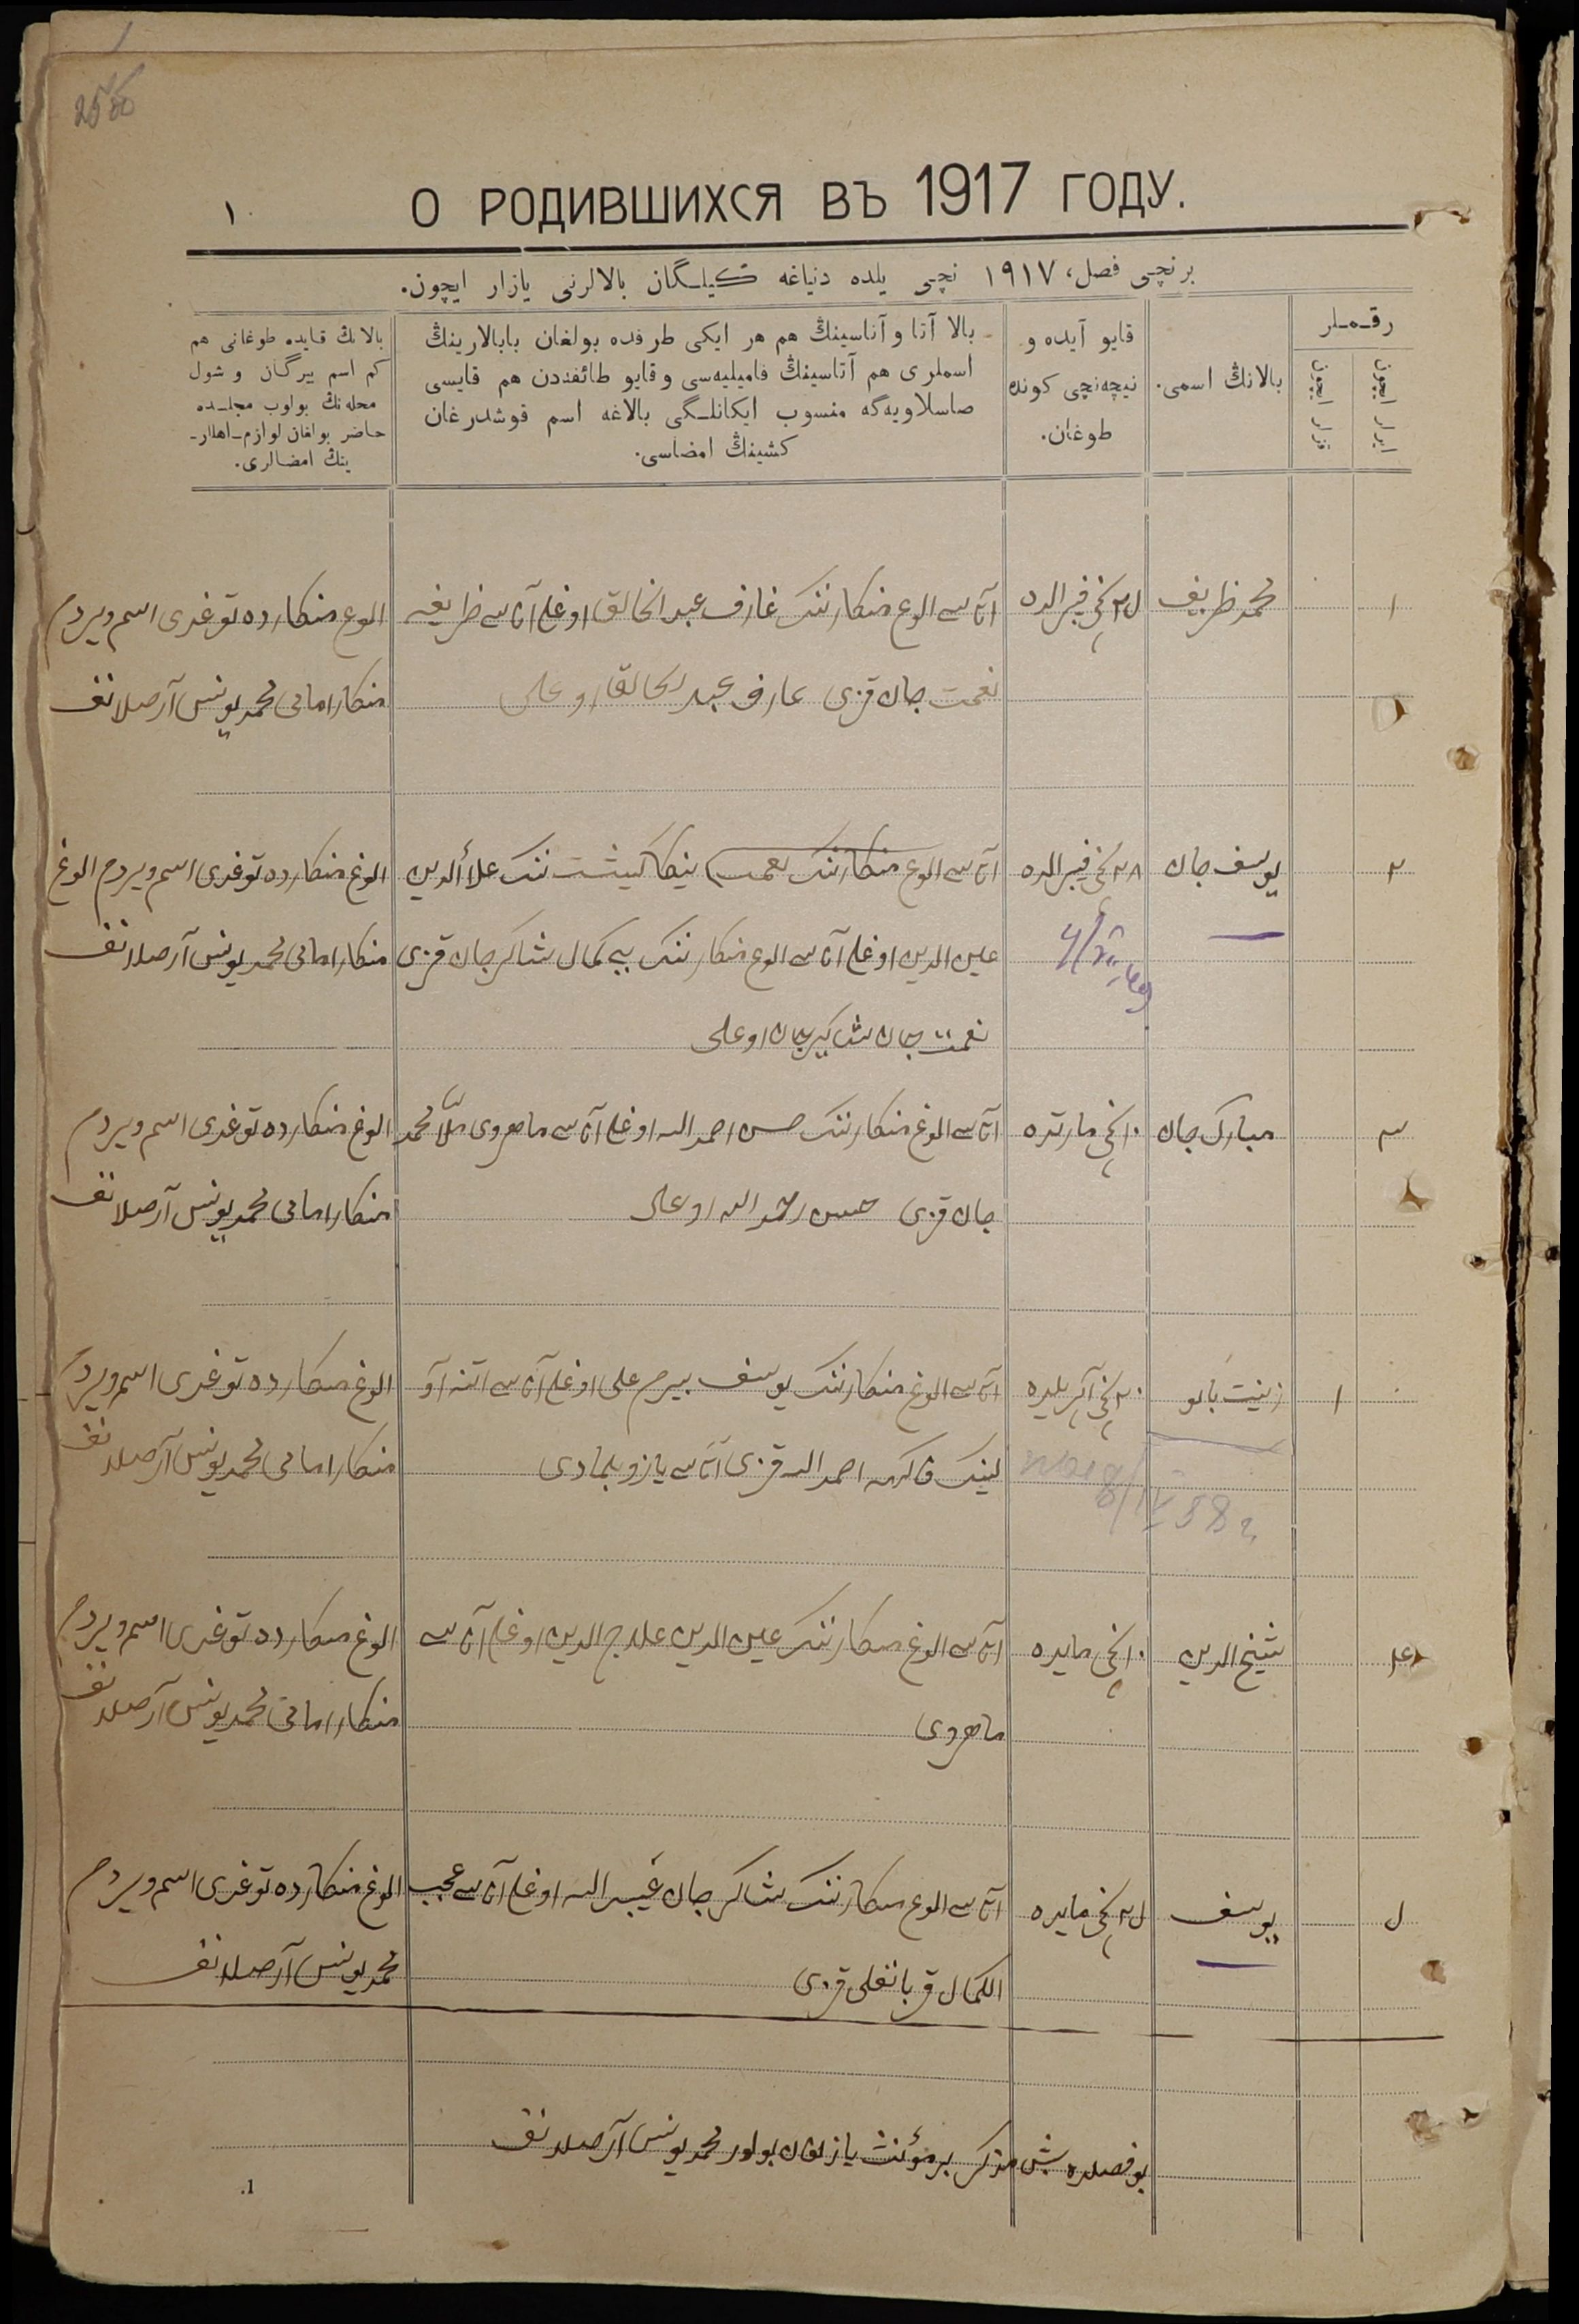 О РОДИВШИХСЯ ВЪ 1917 ГОДУ.
١
برنچی فصل، ١٩١٧ نچی یلده دنیاغه كیلـگان بالالرنی یازار ایچون.
رقـمـلر
ایرلر ایچون
قزلر ایچون
بالانڭ اسمی.
قایو آیده و
نیچەنچی كونده
طوغان.
بالا آتا و آناسینڭ هم هر ایكی طرفده بولغان بابالارینڭ
اسملری هم آتاسینڭ فامیلیەسی و قایو طائفەدن هم قایسی
صاسلاویەگە منسوب ایكانلـگی بالاغه اسم قوشدرغان
كشینڭ امضاسی.
بالانڭ قایده طوغانی هم
كم اسم بیرگان و شول
محلەنڭ بولوب مجلـسده
حاضر بولغان لوازم اهللر-
ینڭ امضالری.
١
محمد ظریف
نچی فیبرالده
آتاسی الوغ منكارننك غارف عبد الخالق اوغلی آناسی ظریفه
نعمت جان قزی عارف عبد الخالق اوغلی
الوغ منكارده توغدی اسم ویردم
منكار امامی محمد یونس آرصلانف
٢
یوسف جان
٢٨ نچی فیبرالده
آتاسی الوغ منكارننك نعمت ینكا كیشت ننك علاألدین
عین الدین اوغلی آناسی الوغ منكارننك بی كمال شاكر جان قزی
نعمت جان شاكیر جان اوغلی
الوغ منكارده توغدی اسم ویردم الوغ
منكار امامی محمد یونس آرصلانف
٣
مبارك جان
١٠ نچی مارتده
آتاسی الوغ منكارننك حسن احمد الله اوغلی آناسی ماهروی ملّا محمد
جان قزی حسن احمد الله اوغلی
الوغ منكارده توغدی اسم ویردم
منكار امامی محمد یونس آرصلانف
١
زینت بانو
٢٠ نچی آپریلده
آتاسی الوغ منكارننك یوسف بیرم علی اوغلی آناسی
احمد الله قزی آتاسی یازو بلمادی
الوغ منكارده توغدی اسم ویردم
منكار امامی محمد یونس آرصلانف
٤
شیخ الدین
١٠ نچی مایده
آتاسی الوغ منكارننك عین الدین علاج الدین اوغلی آناسی
ماهروی
الوغ منكارده توغدی اسم ویردم
منكار امامی محمد یونس آرصلانف
یوسف
نچی مایده
آتاسی الوغ منكارننك شاكر جان غیب الله اوغلی آناسی عجب
الكمال قربانعلی قزی
الوغ منكارده توغدی اسم ویردم
محمد یونس آرصلانف
بو فصلده بش مذكر بر مؤنث یازلغان بولور محمد یونس آرصلانف
1.